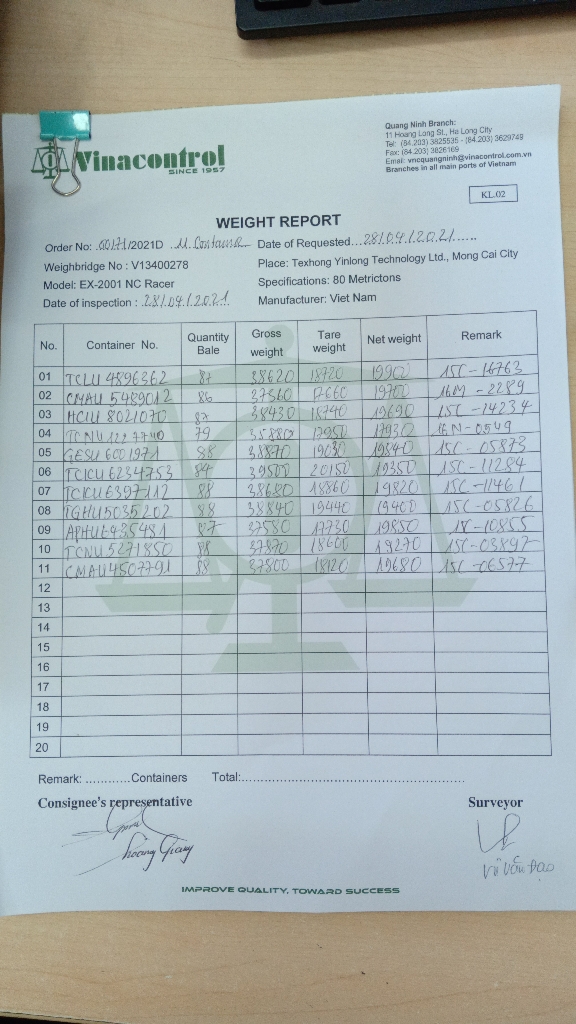 Vinacontrol
SINCE 1957
Quang Ninh Branch:
11 Hoang Long St., Ha Long City
Tel: (84.203) 3825535 - (84.203) 3629749
Fax: (84.203) 3826169
Email: vncquangninh@vinacontrol.com.vn
Branches in all main ports of Vietnam
KL.02
WEIGHT REPORT
Order No: 00171/2021D 11 Container Date of Requested...28/04/2021......
Weighbridge No : V13400278 Place: Texhong Yinlong Technology Ltd., Mong Cai City
Model: EX-2001 NC Racer Specifications: 80 Metrictons
Date of inspection : 28/04/2021 Manufacturer: Viet Nam
No. Container No. Quantity Bale Gross weight Tare weight Net weight Remark
01 TCLU 4896362 87 38620 18720 19900 15C-16763
02 CMAU 5489012 86 37360 17660 19700 16M-2289
03 HCIU 8021070 87 38430 18740 19690 15C-14234
04 TCNU 1227740 79 35880 17950 17930 16N-0549
05 GESU 6001971 88 38870 19030 19840 15C-05873
06 TCKU 6234753 84 39500 20150 19350 15C-11284
07 TCKU 6397112 88 38680 18860 19820 15C-11461
08 TGHU 5035202 88 38840 19440 19400 15C-05826
09 APHU 6435481 87 37580 17730 19850 15C-10855
10 TCNU 5271850 88 37870 18600 19270 15C-03897
11 CMAU 4507791 88 37800 18120 19680 15C-06577
12
13
14
15
16
17
18
19
20
Remark: ............Containers Total:..................................................................
Consignee's representative Surveyor
Hoàng Giang
Vũ Văn Đạo
IMPROVE QUALITY, TOWARD SUCCESS